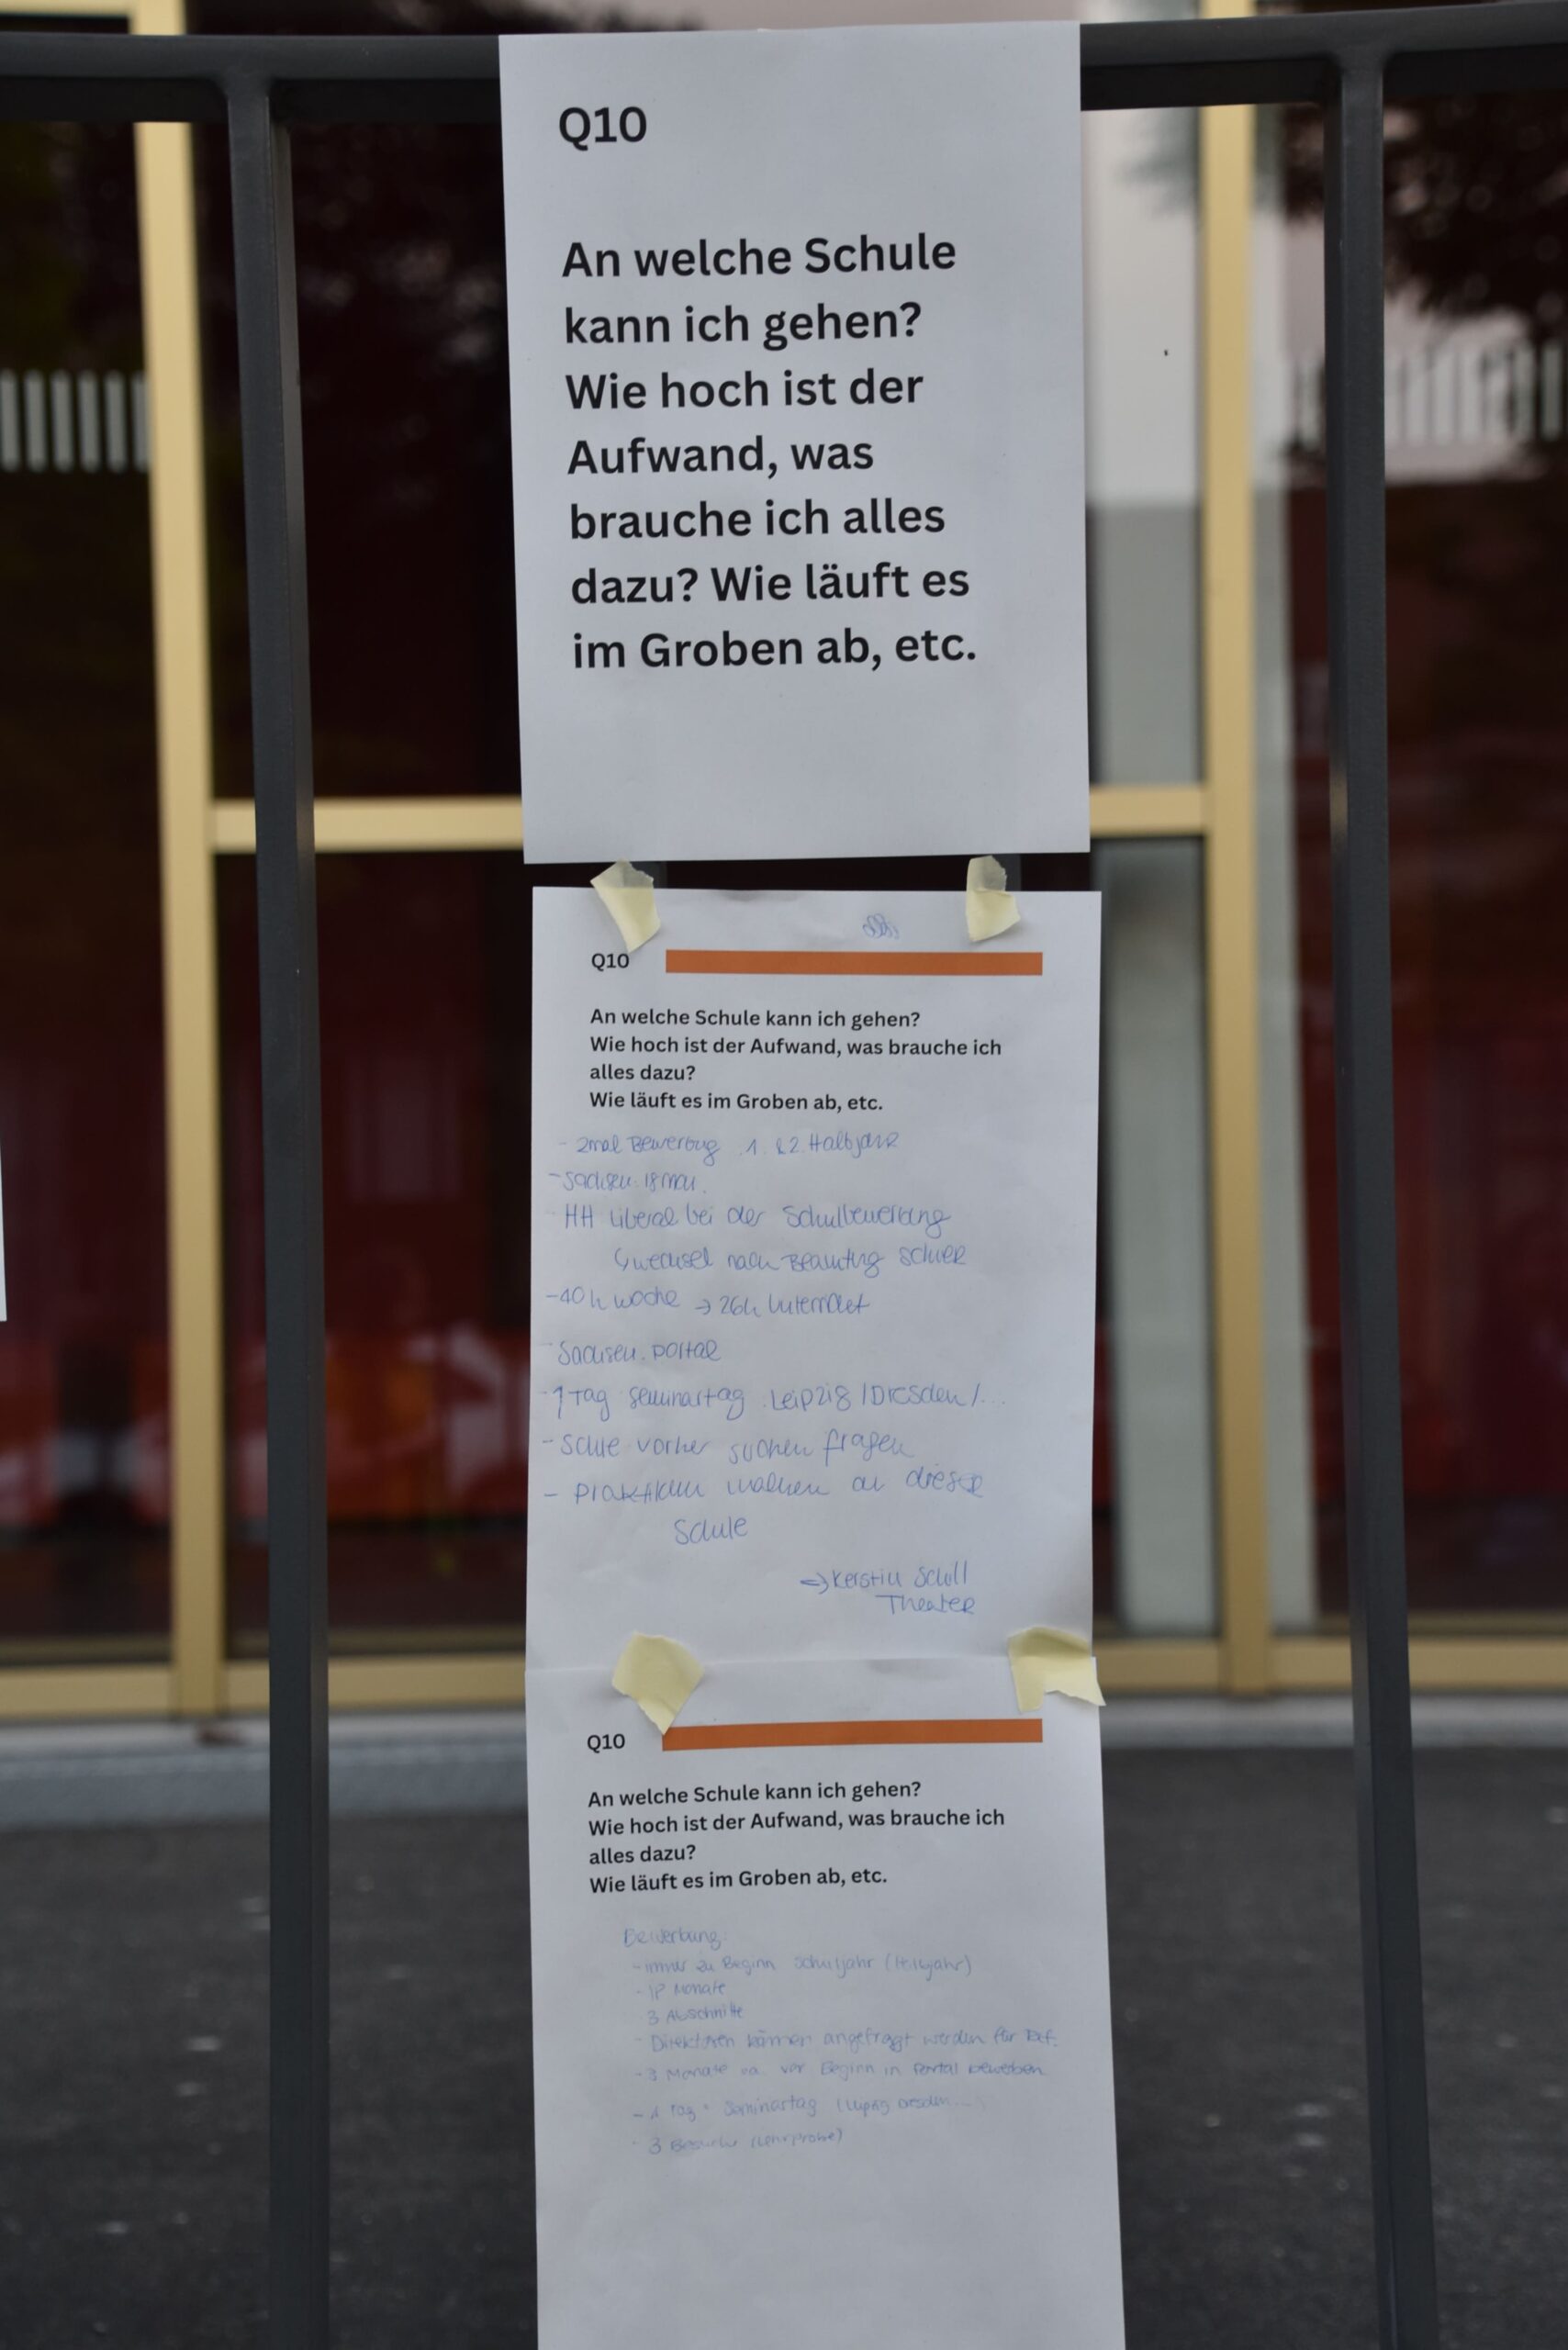 Q10
An welche Schule
kann ich gehen?
Wie hoch ist der
Aufwand, was
brauche ich alles
dazu? Wie läuft es
im Groben ab, etc.
Q10
An welche Schule kann ich gehen?
Wie hoch ist der Aufwand, was brauche ich
alles dazu?
Wie läuft es im Groben ab, etc.
- 2mal Bewerbug 1. & 2. Halbjahr
- Sachsen: 18 Mon.
HH liberal bei der Schulbewerbung
nach
- 40 h Woche → 26h Unterricht
- Sachsen. portal
- 1 Tag Seminartag Leipzig / Dresden / ...
- Schule vorher suchen fragen
- Praktikum machen an dieser
Schule
⇒ Kerstin
Theater
Q10
An welche Schule kann ich gehen?
Wie hoch ist der Aufwand, was brauche ich
alles dazu?
Wie läuft es im Groben ab, etc.
Bewerbung:
- immer zu Beginn Schuljahr
- Monate
3 Abschnitte
- Direktoren können angefragt werden für Ref.
- 3 Monate ca. vor Beginn in Portal bewerben
- 1 Tag = Seminartag (Leipzig Dresden...)
- 3 Besuche (Lehrprobe)